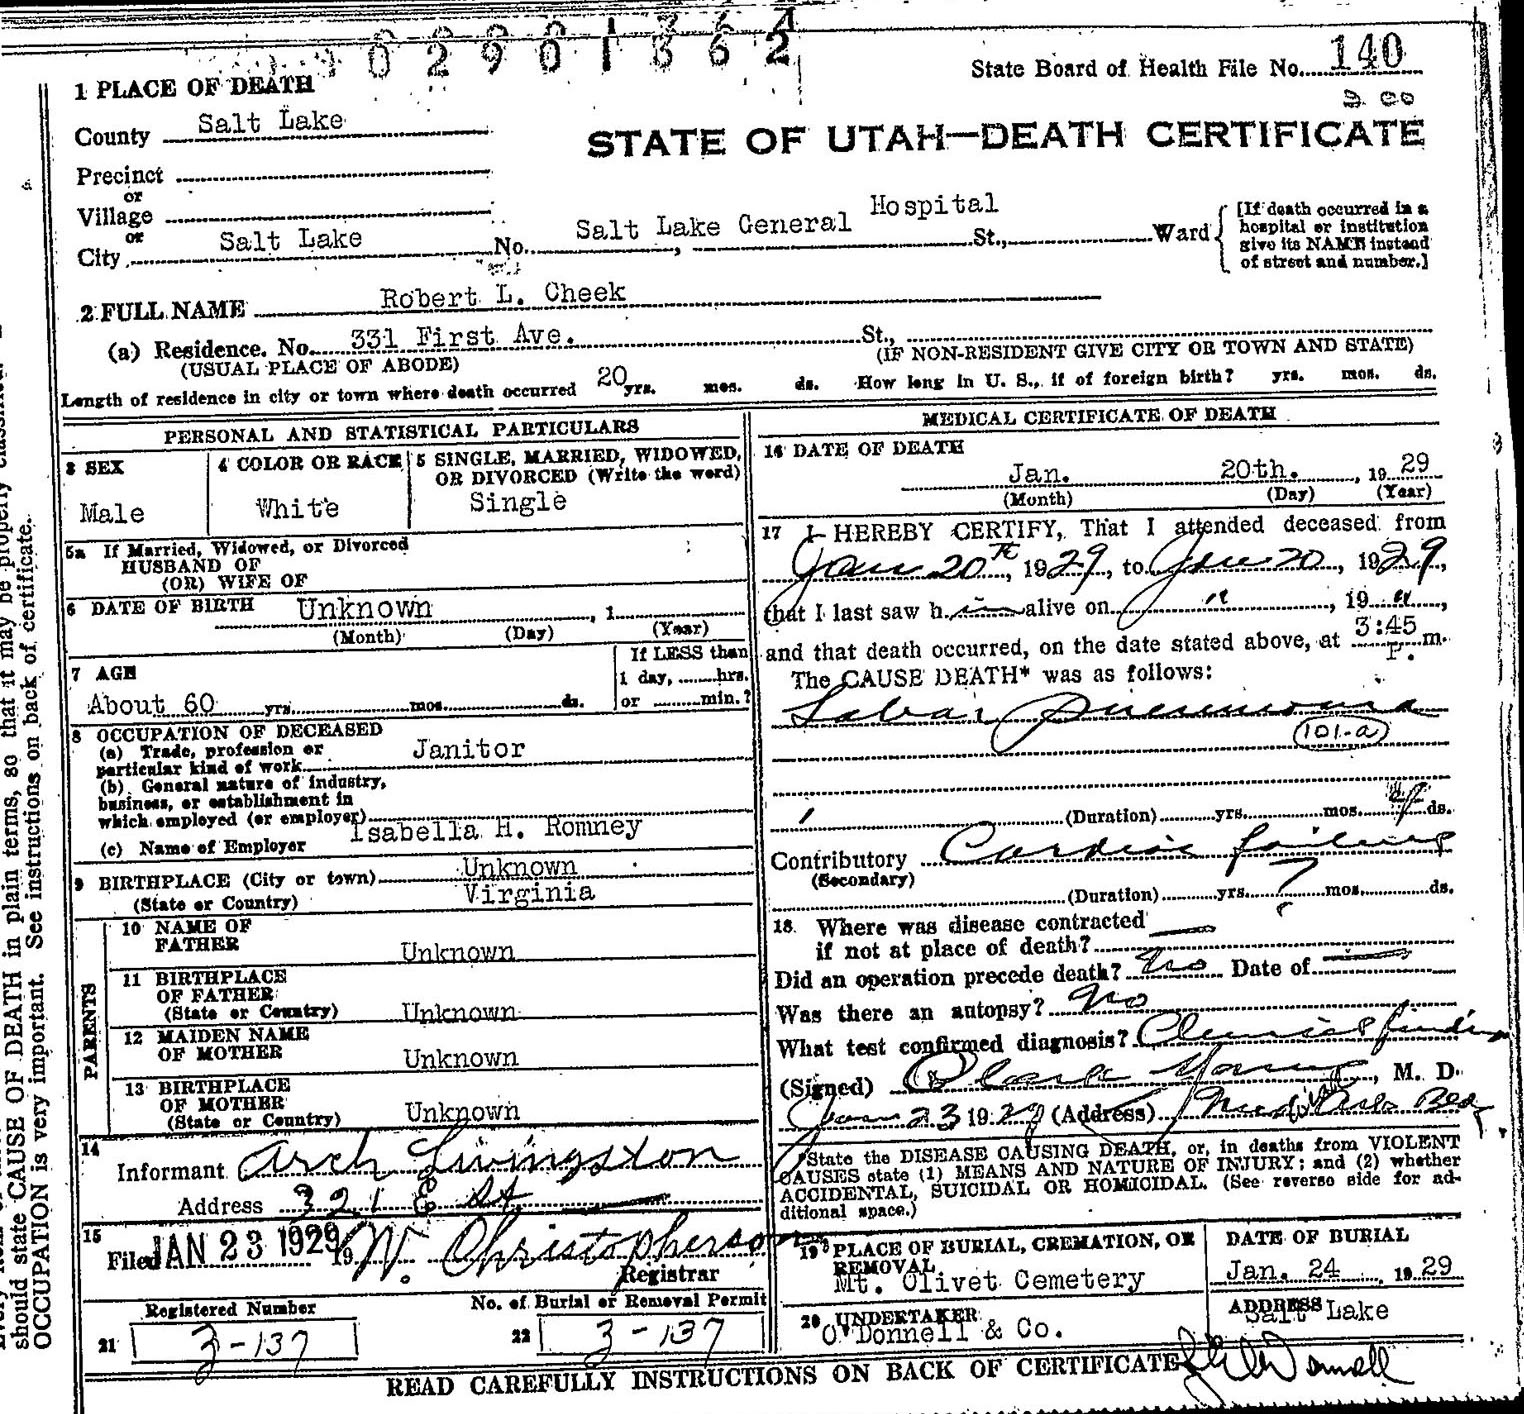 0 2 9 0 1 3 6 2
State Board of Health File No. 140
3 00
1 PLACE OF DEATH
County Salt Lake
STATE OF UTAH—DEATH CERTIFICATE
Precinct
or
Village
or
City Salt Lake No. Salt Lake General Hospital St., Ward
[If death occurred in a
hospital or institution
give its NAME instead
of street and number.]
2 FULL NAME Robert L. Cheek
(a) Residence. No. 331 First Ave. St.,
(USUAL PLACE OF ABODE) (IF NON-RESIDENT GIVE CITY OR TOWN AND STATE)
Length of residence in city or town where death occurred 20 yrs. mos. ds. How long in U. S., if of foreign birth? yrs. mos. ds.
PERSONAL AND STATISTICAL PARTICULARS
3 SEX
Male
4 COLOR OR RACE
White
5 SINGLE, MARRIED, WIDOWED,
OR DIVORCED (Write the word)
Single
5a If Married, Widowed, or Divorced
HUSBAND OF
(OR) WIFE OF
6 DATE OF BIRTH Unknown , 1
(Month) (Day) (Year)
7 AGE
About 60 yrs. mos. ds.
If LESS than
1 day, hrs.
or min.?
8 OCCUPATION OF DECEASED
(a) Trade, profession or
particular kind of work Janitor
(b) General nature of industry,
business, or establishment in
which employed (or employer)
(c) Name of Employer Isabella H. Romney
9 BIRTHPLACE (City or town) Unknown
(State or Country) Virginia
PARENTS
10 NAME OF
FATHER Unknown
11 BIRTHPLACE
OF FATHER
(State or Country) Unknown
12 MAIDEN NAME
OF MOTHER Unknown
13 BIRTHPLACE
OF MOTHER
(State or Country) Unknown
14
Informant Arch Livingston
Address 321 E St
15
Filed JAN 23 1929 19 W. Christopherson
Registrar
Registered Number
21 3-137
No. of Burial or Removal Permit
22 3-137
MEDICAL CERTIFICATE OF DEATH
16 DATE OF DEATH
Jan. 20th. , 19 29
(Month) (Day) (Year)
17 I HEREBY CERTIFY, That I attended deceased from
Jan 20th, 1929, to Jan 20, 1929,
that I last saw h im alive on " , 19 " ,
and that death occurred, on the date stated above, at 3:45 P. m.
The CAUSE DEATH* was as follows:
Lobar pneumonia
101-a
(Duration) yrs. mos. ds.
Contributory Cardiac failure
(Secondary)
(Duration) yrs. ? mos. ds.
18 Where was disease contracted
if not at place of death?
Did an operation precede death? No Date of
Was there an autopsy? No
What test confirmed diagnosis? Clinical findings
(Signed) Clark Young, M. D.
Jan 23 1929 (Address) Medical Arts Bldg
*State the DISEASE CAUSING DEATH, or, in deaths from VIOLENT
CAUSES state (1) MEANS AND NATURE OF INJURY; and (2) whether
ACCIDENTAL, SUICIDAL OR HOMICIDAL. (See reverse side for ad-
ditional space.)
19 PLACE OF BURIAL, CREMATION, OR
REMOVAL
Mt. Olivet Cemetery
DATE OF BURIAL
Jan. 24 , 19 29
20 UNDERTAKER
O'Donnell & Co.
ADDRESS
Salt Lake
READ CAREFULLY INSTRUCTIONS ON BACK OF CERTIFICATE
should state CAUSE OF DEATH in plain terms, so that it may be properly classified.
OCCUPATION is very important. See instructions on back of certificate.